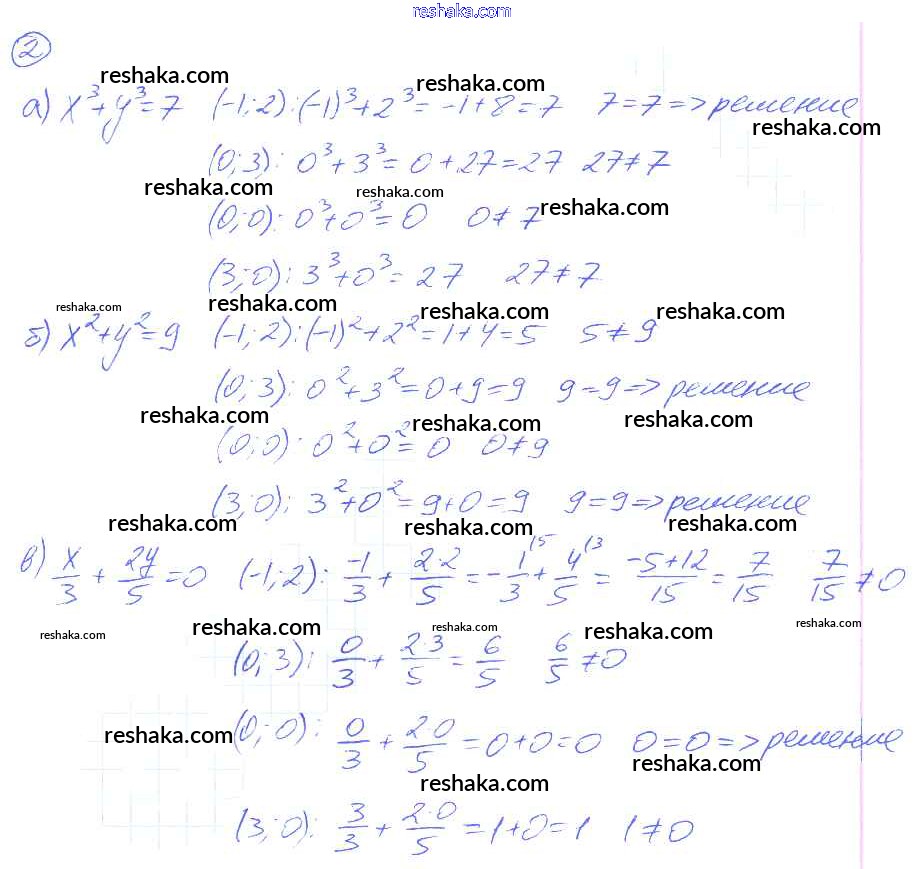 reshaka.com
2
reshaka.com reshaka.com
а) x³+y³=7 (-1;2):(-1)³+2³=-1+8=7 7=7=>решение
reshaka.com
(0;3): 0³+3³=0+27=27 27≠7
reshaka.com reshaka.com
(0;0): 0³+0³=0 0≠7 reshaka.com
(3;0): 3³+0³=27 27≠7
reshaka.com reshaka.com reshaka.com reshaka.com
б) x²+y²=9 (-1;2):(-1)²+2²=1+4=5 5≠9
(0;3): 0²+3²=0+9=9 9=9=>решение
reshaka.com reshaka.com reshaka.com
(0;0): 0²+0²=0 0≠9
(3;0): 3²+0²=9+0=9 9=9=>решение
reshaka.com reshaka.com reshaka.com
в) x/3 + 2y/5 =0 (-1;2): -1/3 + 2·2/5 = -1/3 \5 + 4/5 \3 = -5+12/15 = 7/15 7/15 ≠0
reshaka.com reshaka.com reshaka.com reshaka.com reshaka.com
(0;3): 0/3 + 2·3/5 = 6/5 6/5 ≠0
reshaka.com (0;0): 0/3 + 2·0/5 =0+0=0 0=0=>решение
reshaka.com reshaka.com
(3;0): 3/3 + 2·0/5 =1+0=1 1≠0